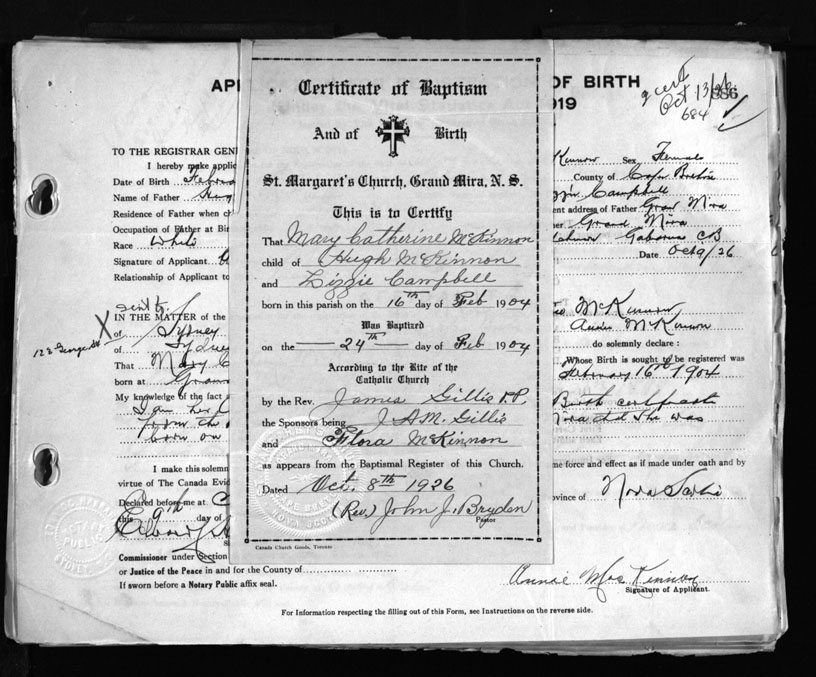 AP
OF BIRTH
1919
Oct 13/26
886
684
TO THE REGISTRAR GEN
I hereby make applic
Date of Birth Februa
Name of Father Hug
Residence of Father when ch
Occupation of Father at Bir
Race White
Signature of Applicant
Relationship of Applicant to
IN THE MATTER of the
of Sydney
of Sydney
That Mary C
born at Gran
My knowledge of the fact
I am her
from the
born on
I make this solemn
virtue of The Canada Evid
Declared before me at
this 9th day of
Commissioner under Section
or Justice of the Peace in and for the County of
If sworn before a Notary Public affix seal.
Certificate of Baptism
And of Birth
St. Margaret's Church, Grand Mira, N. S.
This is to Certify
That Mary Catherine McKinnon
child of Hugh McKinnon
and Lizzie Campbell
born in this parish on the 16th day of Feb 1904
Was Baptized
on the 24th day of Feb 1904
According to the Rite of the
Catholic Church
by the Rev. James Gillis P.P.
the Sponsors being J.A.M. Gillis
and Flora McKinnon
as appears from the Baptismal Register of this Church.
Dated Oct. 8th 1926
(Rev.) John J. Bryden
Pastor
Canada Church Goods, Toronto
Kinnon Sex Female
County of Cape Breton
Campbell
ent address of Father Grand Mira
Grand Mira
Gabarus CB
Date Oct 9/26
McKinnon
Annie McKinnon
do solemnly declare :
Whose Birth is sought to be registered was
February 16th 1904
Birth certificate
she was
me force and effect as if made under oath and by
ovince of Nova Scotia
Annie McKinnon
Signature of Applicant.
For Information respecting the filling out of this Form, see Instructions on the reverse side.